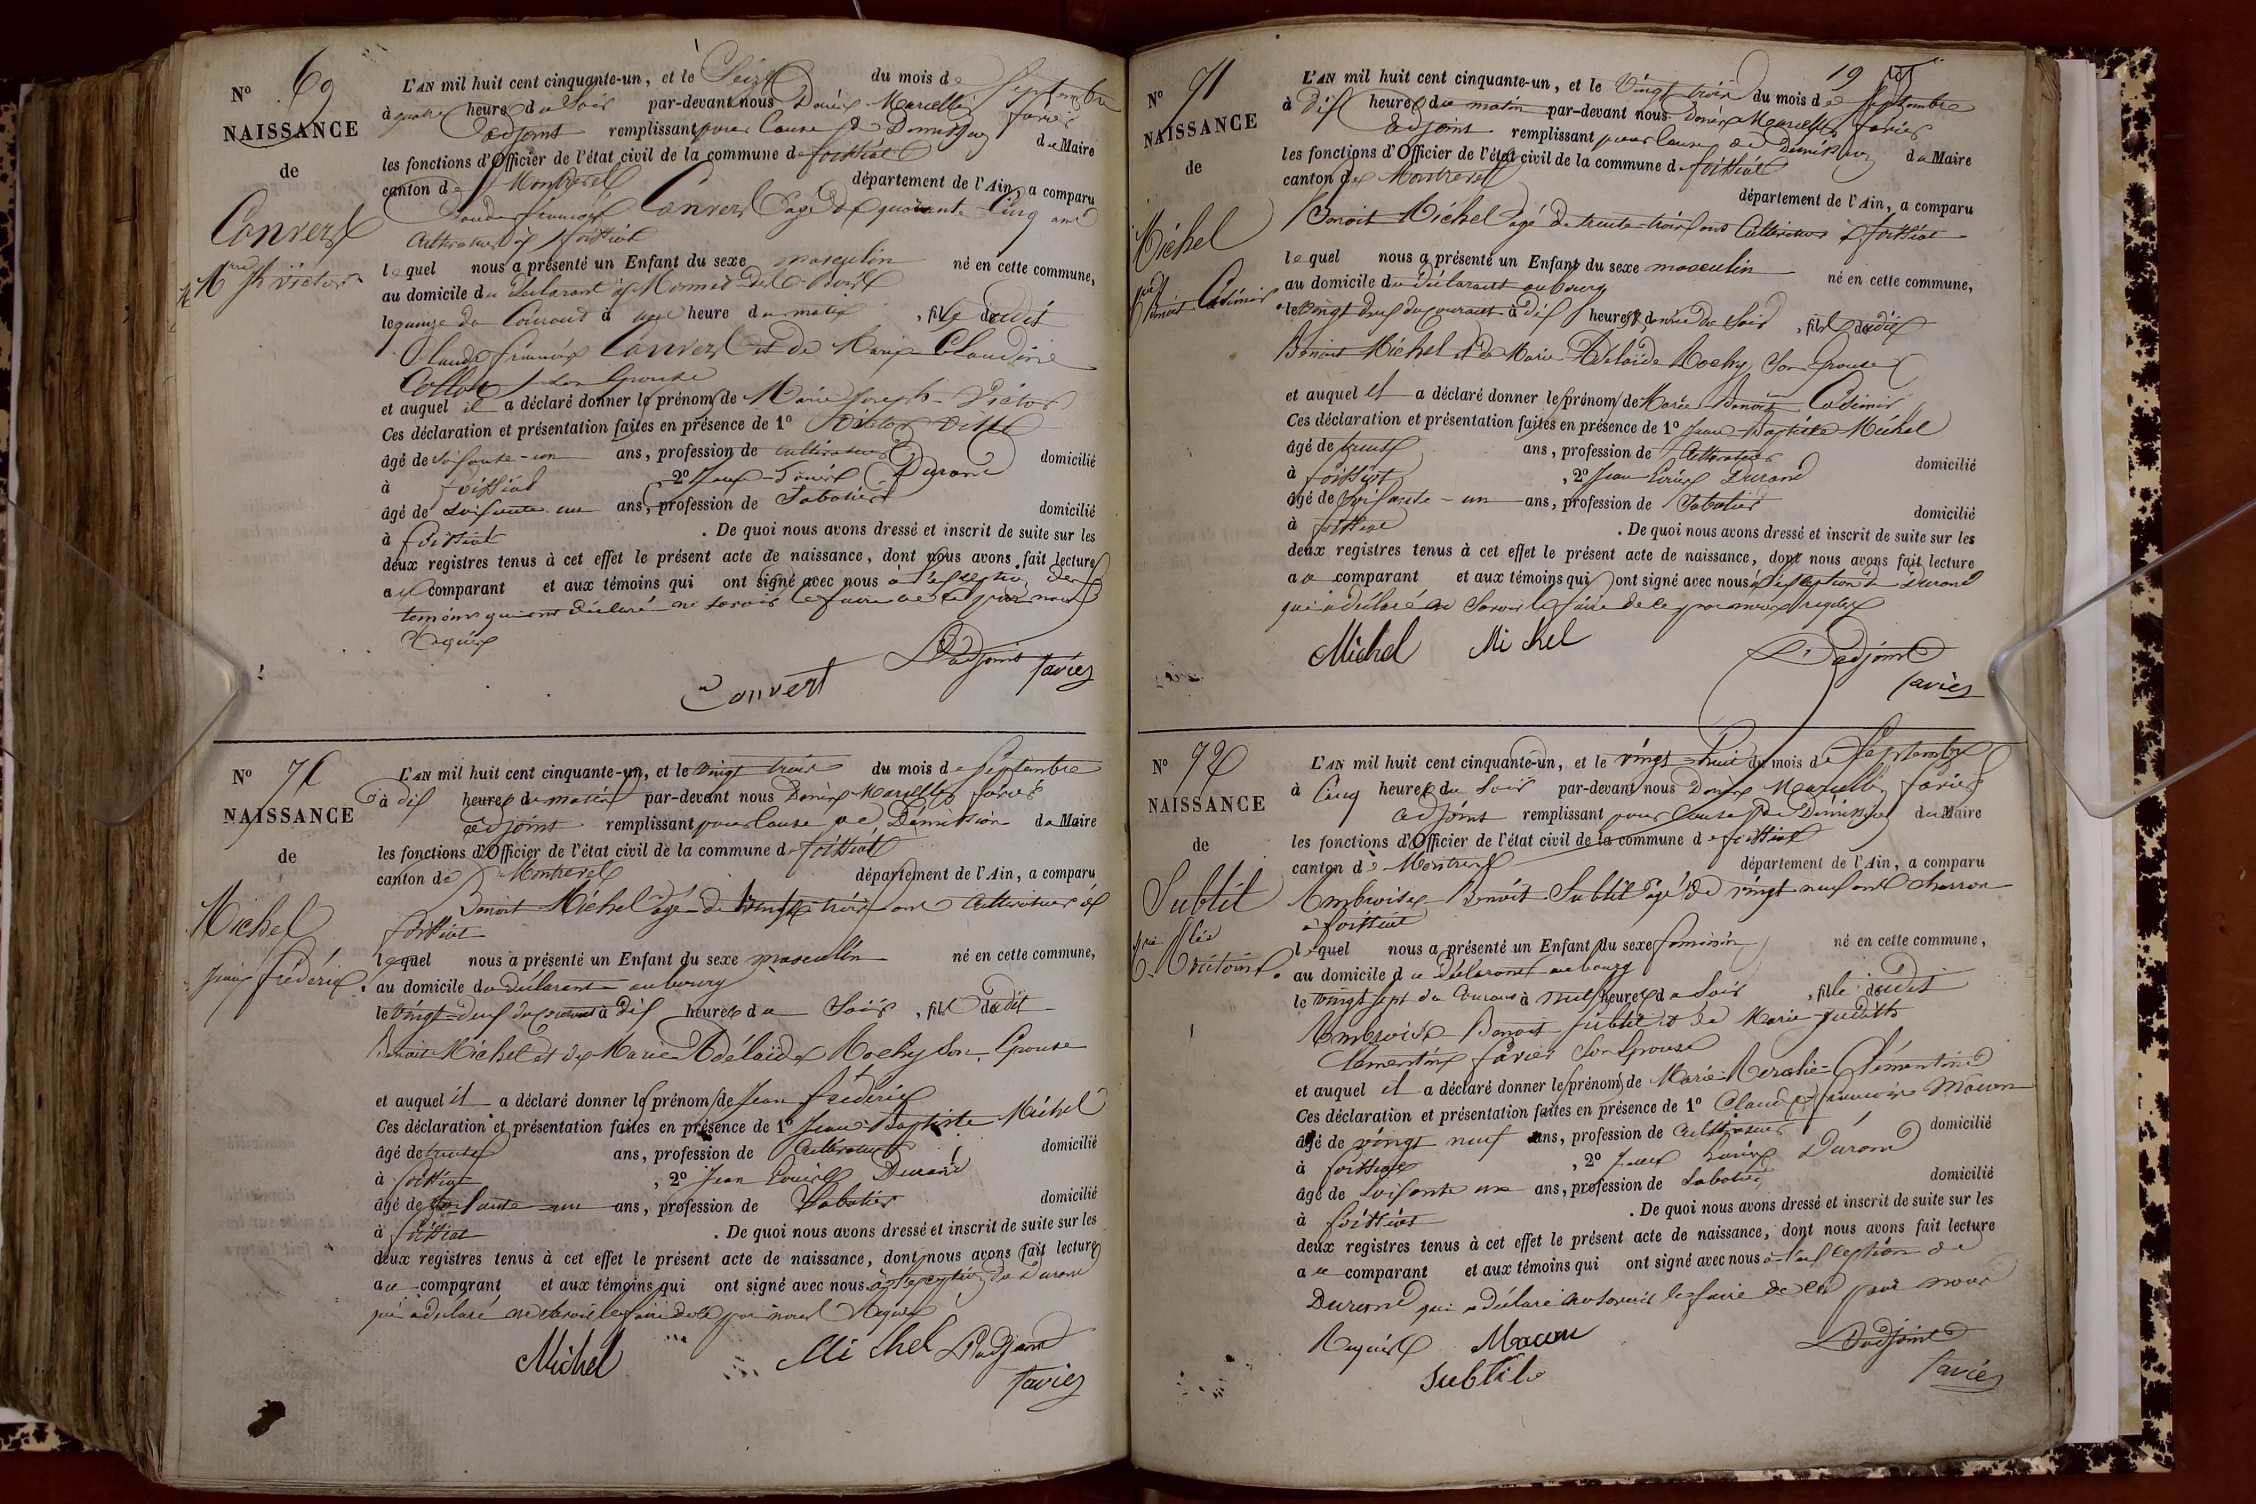 N° 69
NAISSANCE
de
Convert
Mie Jh victor
L'AN mil huit cent cinquante-un, et le Seize du mois de Septembre
à quatre heures du Soir par-devant nous Denis Marcellin favier
adjoint remplissant pour Cause de Demission du Maire
les fonctions d'Officier de l'état civil de la commune de foissiat
canton de Montrevel département de l'Ain, a comparu
Claude françois Convert agé de quarante Cinq ans
Cultivateur à foissiat
lequel nous a présenté un Enfant du sexe masculin né en cette commune,
au domicile du declarant
le quinze du Courant à une heure du matin, fils dudit
Claude françois Convert et de Marie Claudine
son Epouse
et auquel il a déclaré donner les prénoms de Marie Joseph Victor
Ces déclaration et présentation faites en présence de 1°
âgé de soixante-un ans, profession de cultivateur domicilié
à foissiat, 2° Jean Louis Durand
âgé de soixante un ans, profession de Sabotier domicilié
à foissiat. De quoi nous avons dressé et inscrit de suite sur les
deux registres tenus à cet effet le présent acte de naissance, dont nous avons fait lecture
au comparant et aux témoins qui ont signé avec nous à l'exception des
temoins qui ont déclaré ne savoir le faire de ce par nous
Requis
L'adjoint
Convert favier
N° 70
NAISSANCE
de
Michel
Jean frédéric.
L'AN mil huit cent cinquante-un, et le vingt trois du mois de Septembre
à dix heures du matin par-devant nous Denis Marcellin favier
adjoint remplissant pour Cause de Démission du Maire
les fonctions d'Officier de l'état civil de la commune de foissiat
canton de Montrevel département de l'Ain, a comparu
Benoit Michel agé de trente trois ans Cultivateur à
foissiat
lequel nous a présenté un Enfant du sexe masculin né en cette commune,
au domicile du déclarant au bourg
le vingt-deux du courant à dix heures du Soir, fils dudit
Benoit Michel et de Marie Adélaïde Rochy son Epouse
et auquel il a déclaré donner les prénoms de Jean frédéric
Ces déclaration et présentation faites en présence de 1° Jean-Baptiste Michel
âgé de trente ans, profession de Cultivateur domicilié
à foissiat, 2° Jean Louis Durand
âgé de soixante un ans, profession de Sabotier domicilié
à foissiat. De quoi nous avons dressé et inscrit de suite sur les
deux registres tenus à cet effet le présent acte de naissance, dont nous avons fait lecture
au comparant et aux témoins qui ont signé avec nous à l'exception de Durand
qui a déclaré ne savoir le faire de ce par nous Requis
Michel Michel L'adjoint
favier
19
N° 71
NAISSANCE
de
Michel
Benoit Casimir
L'AN mil huit cent cinquante-un, et le Vingt trois du mois de Septembre
à dix heures du matin par-devant nous Denis Marcellin favier
adjoint remplissant pour Cause de Démission du Maire
les fonctions d'Officier de l'état civil de la commune de foissiat
canton de Montrevel département de l'Ain, a comparu
Benoit Michel agé de trente-trois ans Cultivateur à foissiat
lequel nous a présenté un Enfant du sexe masculin né en cette commune,
au domicile du déclarant au bourg
le vingt deux du courant à dix heures du Soir, fils dudit
Benoit Michel et de Marie Adélaïde Rochy son Epouse
et auquel il a déclaré donner les prénoms de Marie Benoit Casimir
Ces déclaration et présentation faites en présence de 1° Jean-Baptiste Michel
âgé de trente ans, profession de Cultivateur domicilié
à foissiat, 2° Jean Louis Durand
âgé de soixante-un ans, profession de Sabotier domicilié
à foissiat. De quoi nous avons dressé et inscrit de suite sur les
deux registres tenus à cet effet le présent acte de naissance, dont nous avons fait lecture
au comparant et aux témoins qui ont signé avec nous à l'exception de Durand
qui a déclaré ne savoir le faire de ce par nous requis
Michel Michel L'adjoint
favier
N° 72
NAISSANCE
de
Subtil
L'AN mil huit cent cinquante-un, et le vingt-huit du mois de Septembre
à Cinq heures du Soir par-devant nous Denis Marcellin favier
adjoint remplissant pour Cause de Démission du Maire
les fonctions d'Officier de l'état civil de la commune de foissiat
canton de Montrevel département de l'Ain, a comparu
Ambroise Benoit Subtil agé de vingt neuf ans charron
à foissiat
lequel nous a présenté un Enfant du sexe féminin né en cette commune,
au domicile du déclarant au bourg
le vingt sept du Courant à neuf heures du Soir, fille dudit
Ambroise Benoit Subtil et de Marie Judith
Clementine favier Son Epouse
et auquel il a déclaré donner les prénoms de Marie Clémentine
Ces déclaration et présentation faites en présence de 1° Claude françois Macon
âgé de vingt neuf ans, profession de cultivateur domicilié
à foissiat, 2° Jean Louis Durand
âgé de soixante un ans, profession de Sabotier domicilié
à foissiat. De quoi nous avons dressé et inscrit de suite sur les
deux registres tenus à cet effet le présent acte de naissance, dont nous avons fait lecture
au comparant et aux témoins qui ont signé avec nous à l'exception de
Durand qui a déclaré ne savoir le faire de ce par nous
Requis Macon L'adjoint
Subtil favier